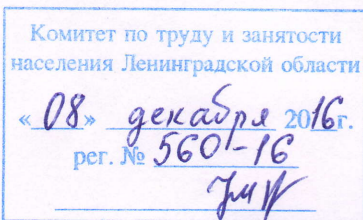 Комитет по труду и занятости
населения Ленинградской области
«08» декабря 2016г.
рег. № 560-16